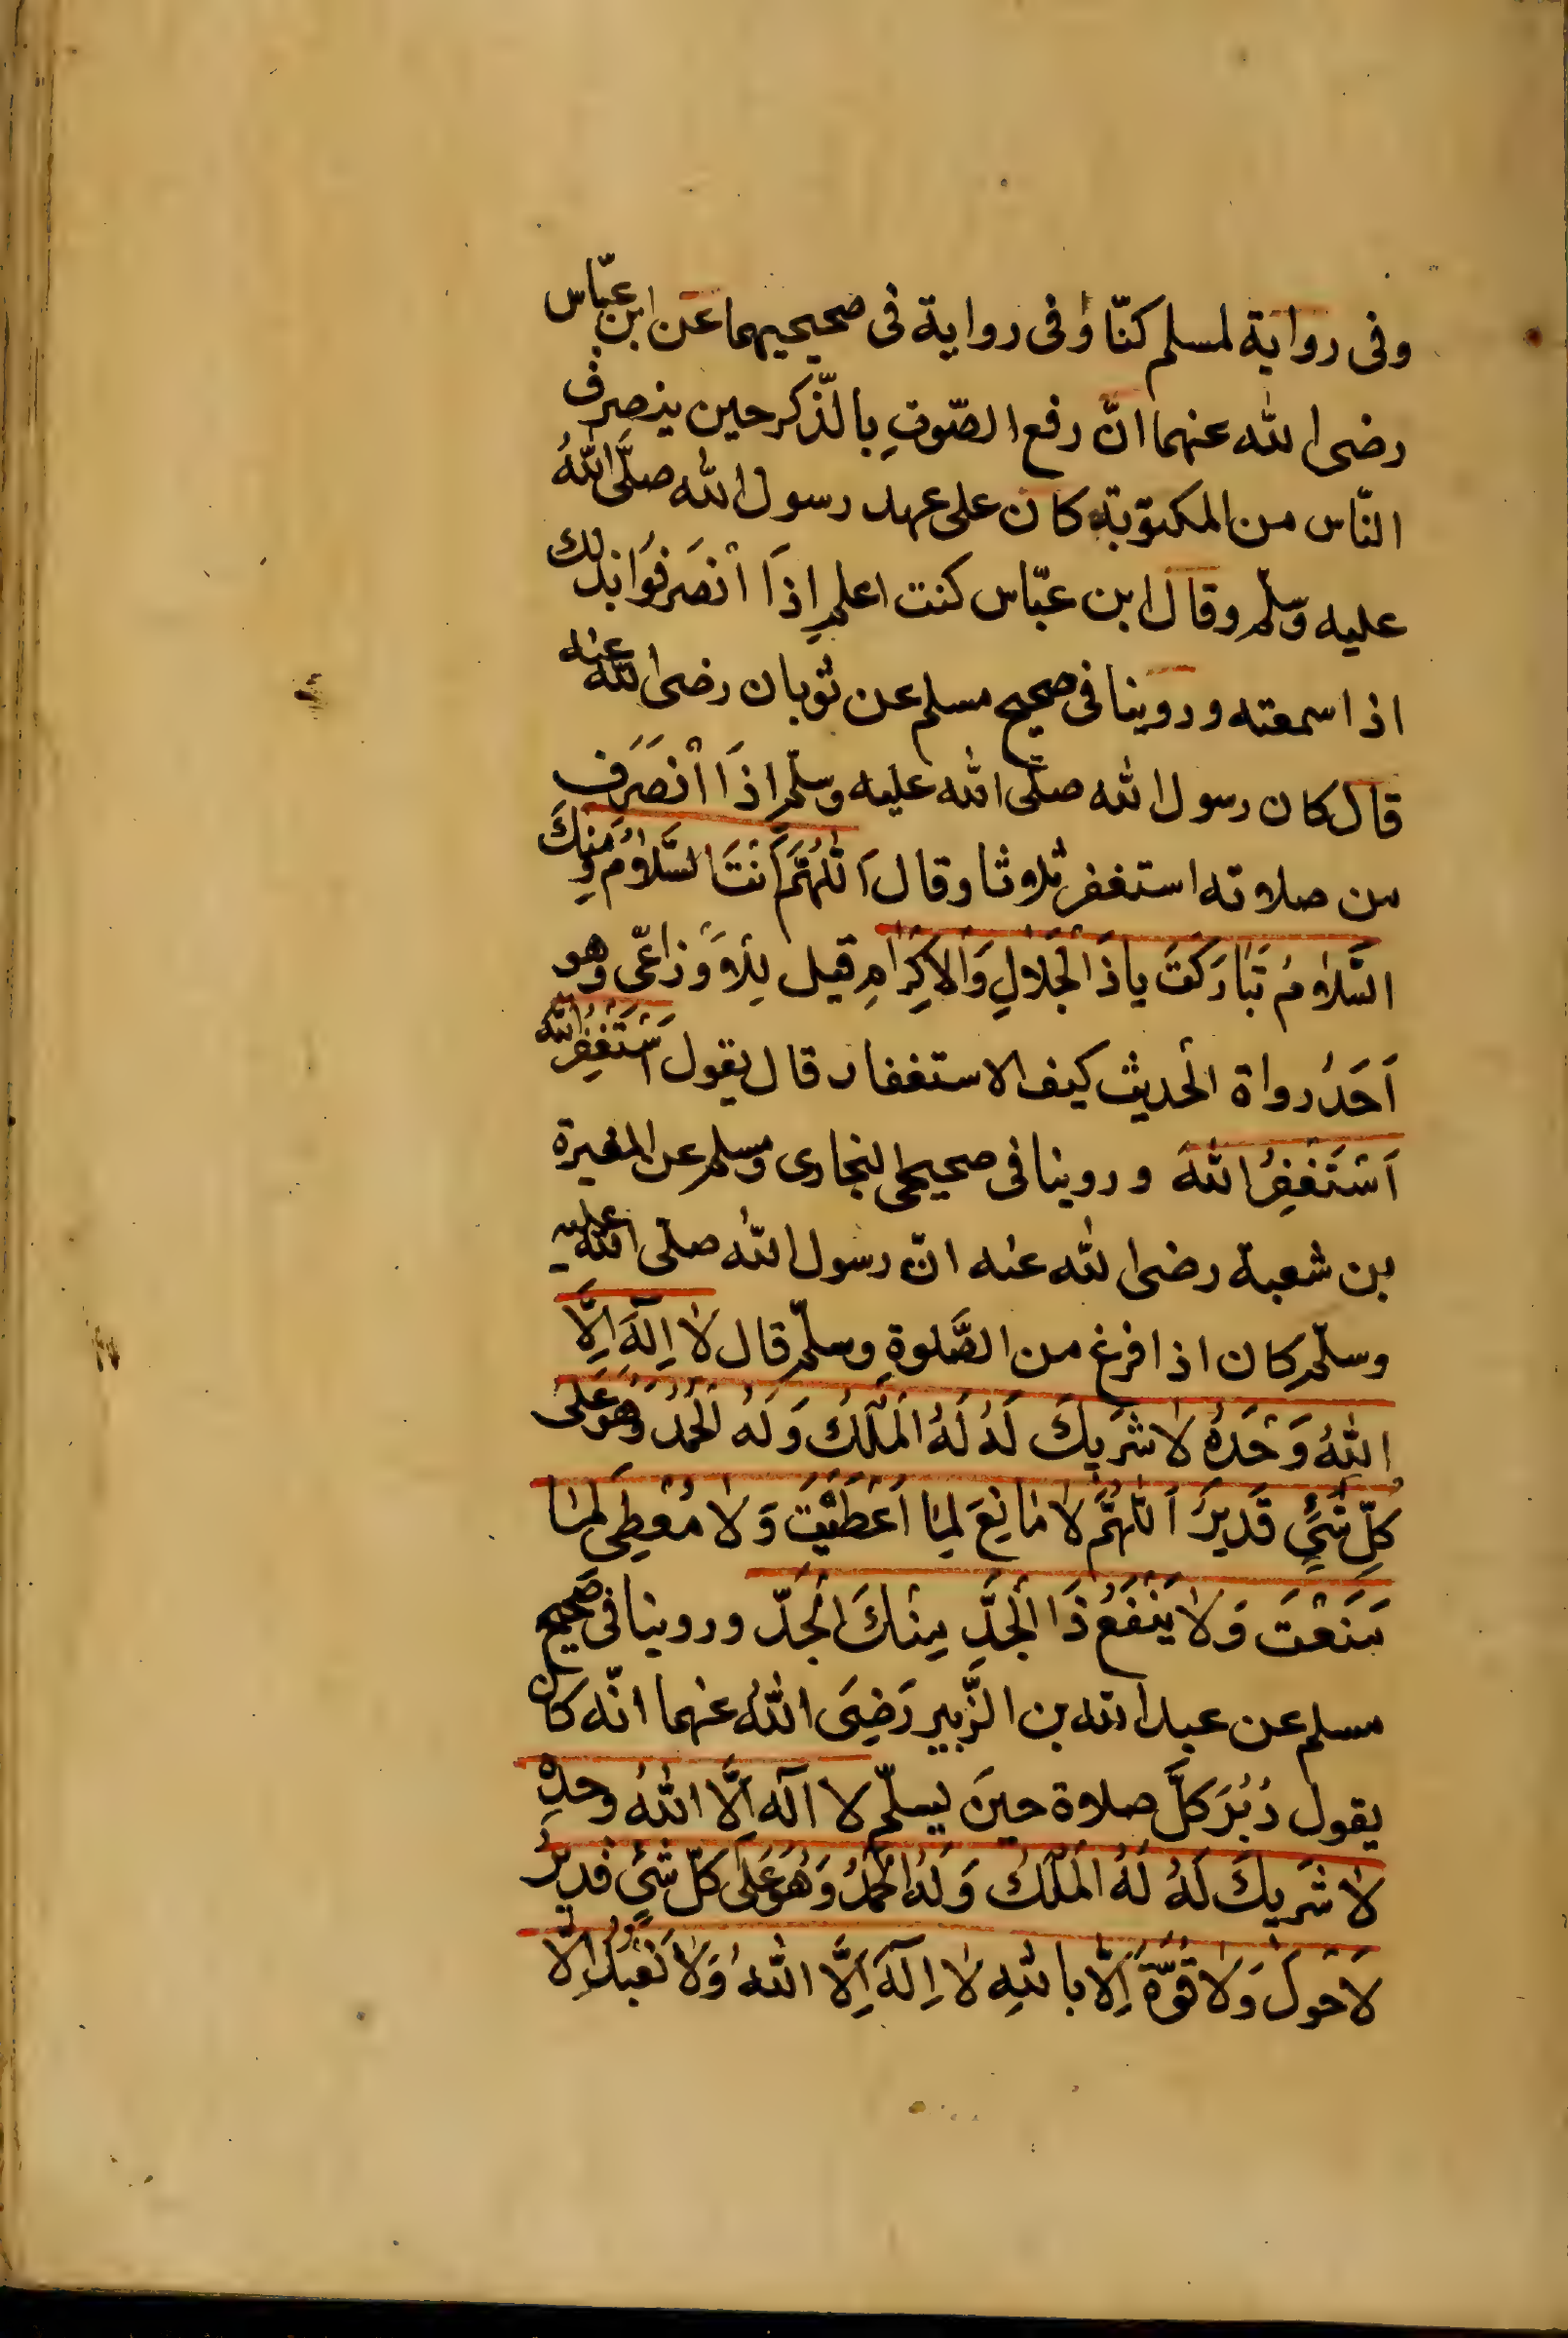 وفى رواية لمسلم كنّا وفى رواية فى صحيحيهما عن ابن عبّاس
رضى الله عنهما انّ رفع الصّوتِ بالذّكر حين ينصرِف
النّاس من المكتوبة كان على عهد رسول الله صلَّى اللهُ
عليه وسلّم وقال ابن عبّاس كنت اعلم اِذَا اْنْصَرَفُوَا بذلك
اذا سمعته وروينا فى صحيح مسلم عن ثوبان رضى الله عنه
قال كان رسول الله صلّى الله عليه وسلّم اِذَا اْنْصَرَف
من صلاته استغفر ثلاثا وقال اَللّٰهُمَّ اَنْتَ السَّلَامُ وَمِنْكَ
السَّلَامُ تَبَارَكْتَ ياذَا الْجَلَالِ وَالْاِكْرَامِ قيل لِلْاَوْزَاعّى وهو
اَحَدُ رواة الْحديث كيف الاستغفار قال يقول اَسْتَغْفِرُ اللّٰهَ
اَسْتَغْفِرُ اللّٰهَ وروينا فى صحيحى البخارى ومسلم عن المغيرة
بن شعبة رضى الله عنه انّ رسول الله صلّى الله عليه
وسلّم كان اذا فرغ من الصَّلوةِ وسلّم قال لَا اِلٰهَ اِلَّا
اللّٰهُ وَحْدَهُ لَا شَرِيكَ لَهُ لَهُ الْمُلْكُ وَلَهُ الْحَمْدُ وَهُوَ عَلٰى
كُلِّ شَىْءٍ قَدِيرٌ اَللّٰهُمَّ لَا مَانِعَ لِمَا اَعْطَيْتَ وَلَا مُعْطِىَ لِمَا
مَنَعْتَ وَلَا يَنْفَعُ ذَا الْجَدِّ مِنْكَ الْجَدُّ وروينا فى صَحيح
مسلم عن عبد الله بن الزّبير رَضِىَ اللّٰهُ عنهما انّه كان
يقول دُبُرَ كلِّ صلاة حينَ يسلّم لا اله اِلَّا اللّٰهُ وحدهُ
لَا شَرِيكَ لَهُ لَهُ الْمُلْكُ وَلَهُ الْحَمْدُ وَهُوَ عَلَى كُلّ شَىْءٍ قديرٌ
لَا حَوْلَ وَلَا قُوَّةَ اِلَّا باللّٰهِ لَا اِلٰهَ اِلَّا اللّٰهُ وَلَا نَعْبُدُ اِلَّا